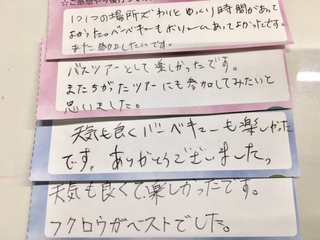 1つ1つの場所ズわりとゆっくり時間があって
よかった。ベーベキューもボリュームあってよかったです。
また参加したいです。
バスツアーとして楽しかったです。
またちがたツアーにも参加してみたいと
思いました。
天気も良くバーベキューも楽しかった
です。ありがとうございました。
天気も良くて楽しかったです。
フクロウがベストでした。